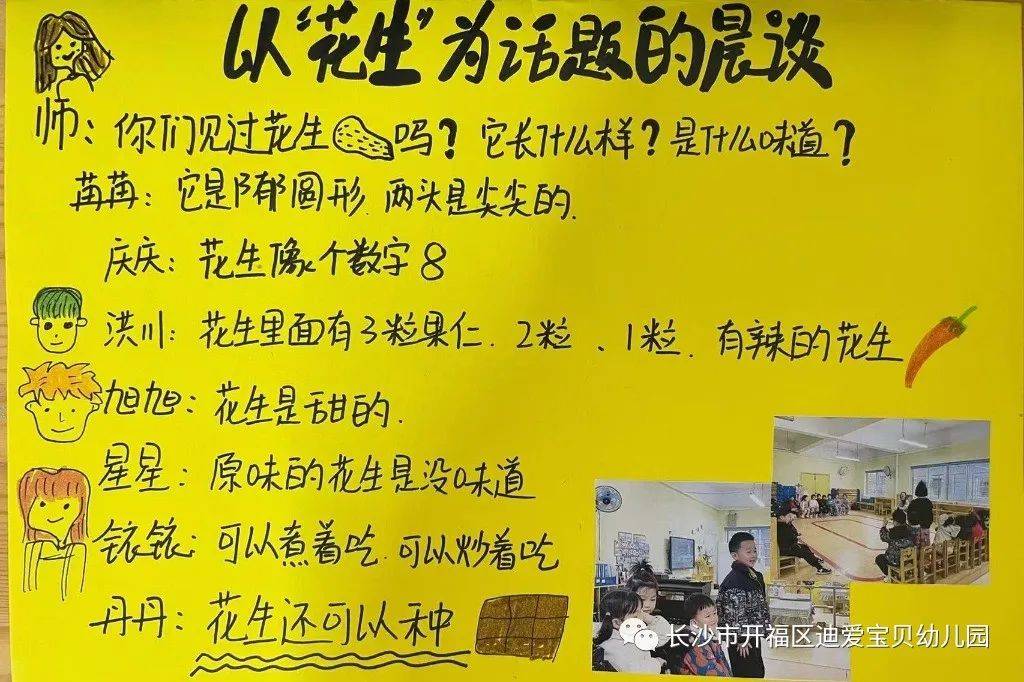 以"花生"为话题的晨谈
师：你们见过花生吗？它长什么样？是什么味道？
苒苒：它是椭圆形、两头是尖尖的.
庆庆：花生像个数字8
洪川：花生里面有3粒果仁、2粒、1粒、有辣的花生
旭旭：花生是甜的.
星星：原味的花生是没味道
铱铱：可以煮着吃、可以炒着吃
丹丹：花生还可以种
长沙市开福区迪爱宝贝幼儿园